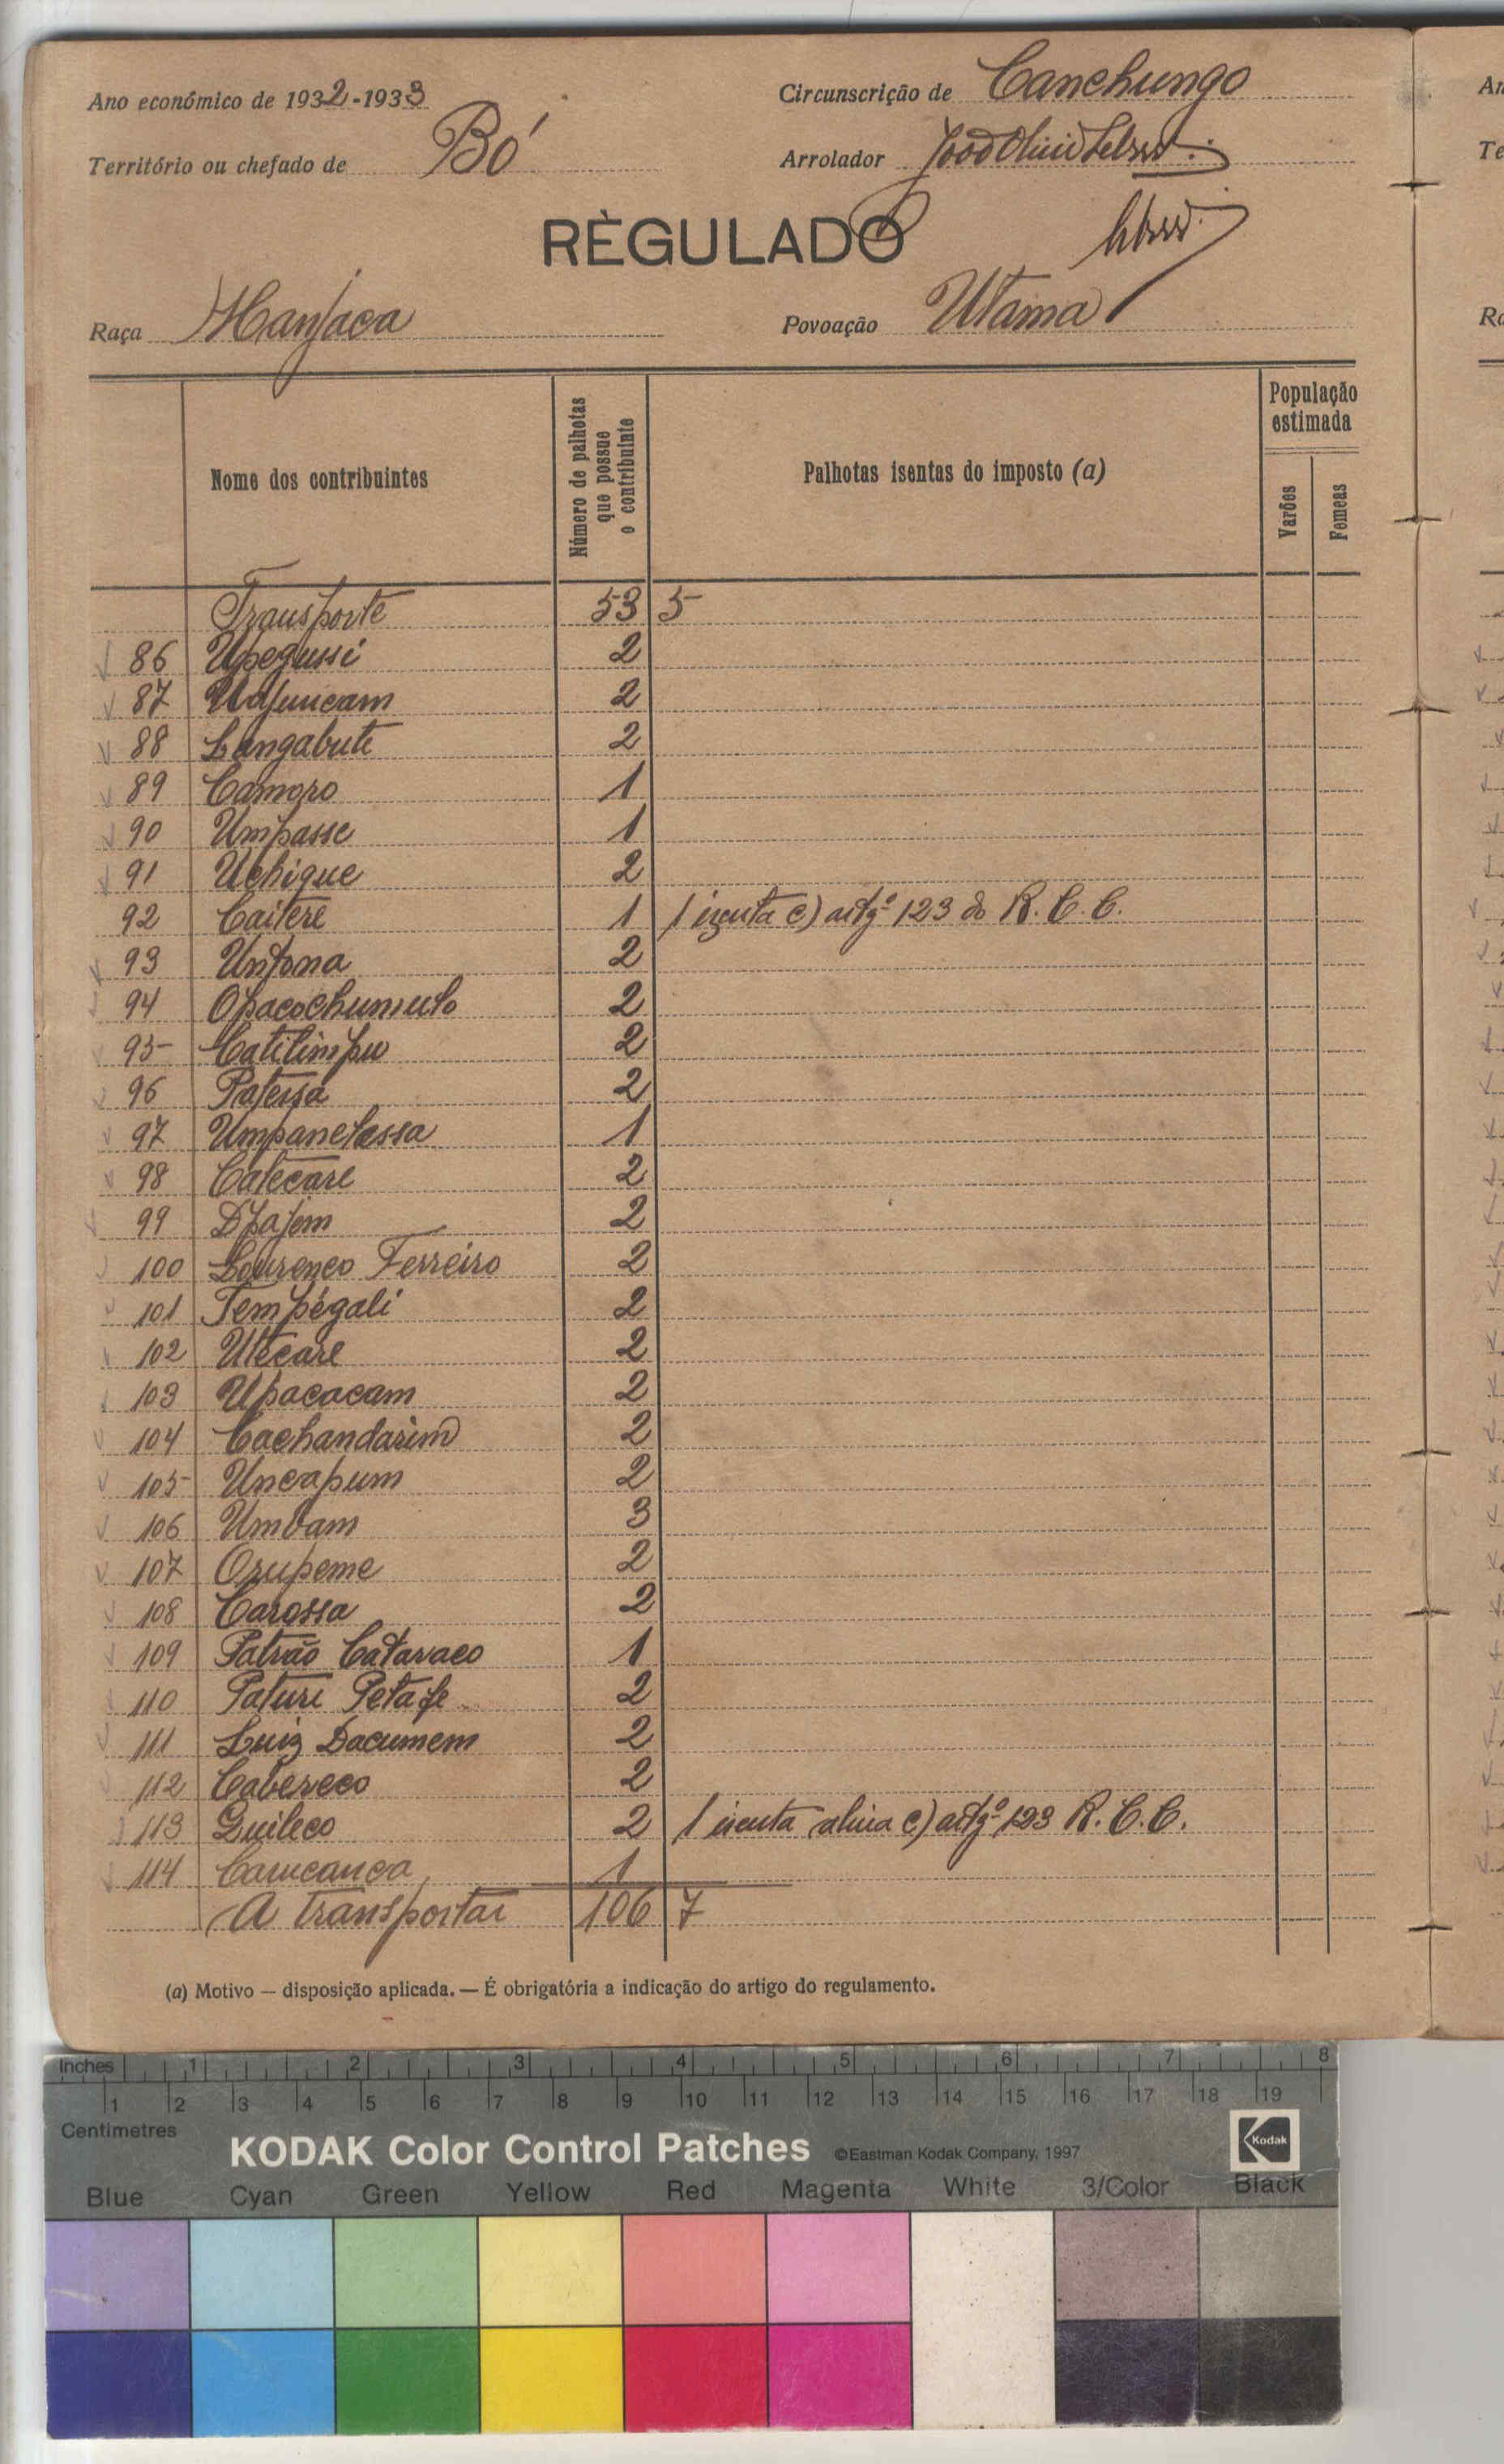 Ano económico de 1932-1933
Circunscrição de Canchungo
Território ou chefado de Bó
Arrolador
RÈGULADO
Raça Manjaca
Povoação Utama
Nome dos contribuintes
Número de palhotas que possue o contribuinte
Palhotas isentas do imposto (a)
População estimada
Varões
Femeas
Transporte 53 5
86 Upegussi 2
87 2
88 Langabute 2
89 Camoro 1
90 Umpasse 1
91 Uchique 2
92 Caitere 1 1 izenta c) artgº 123 do R. C. C.
93 Untona 2
94 Opacochumulo 2
95 Catilimpu 2
96 Patessa 2
97 Umpanelassa 1
98 Catecare 2
99 2
100 Lourenco Ferreiro 2
101 Tempégali 2
102 Utecare 2
103 Upacacam 2
104 Cachandarim 2
105 Uncapum 2
106 Umbam 3
107 Orupeme 2
108 Carossa 2
109 Patrão Cataraco 1
110 Paturi 2
111 Luiz Dacumem 2
112 Cabereco 2
113 Quileco 2 1 izenta alinia c) artgº 123 R. C. C.
114 1
A transportar 106 7
(a) Motivo — disposição aplicada. — É obrigatória a indicação do artigo do regulamento.
Inches 1 2 3 4 5 6 7 8
1 2 3 4 5 6 7 8 9 10 11 12 13 14 15 16 17 18 19
Centimetres
KODAK Color Control Patches ©Eastman Kodak Company, 1997 Kodak
Blue Cyan Green Yellow Red Magenta White 3/Color Black